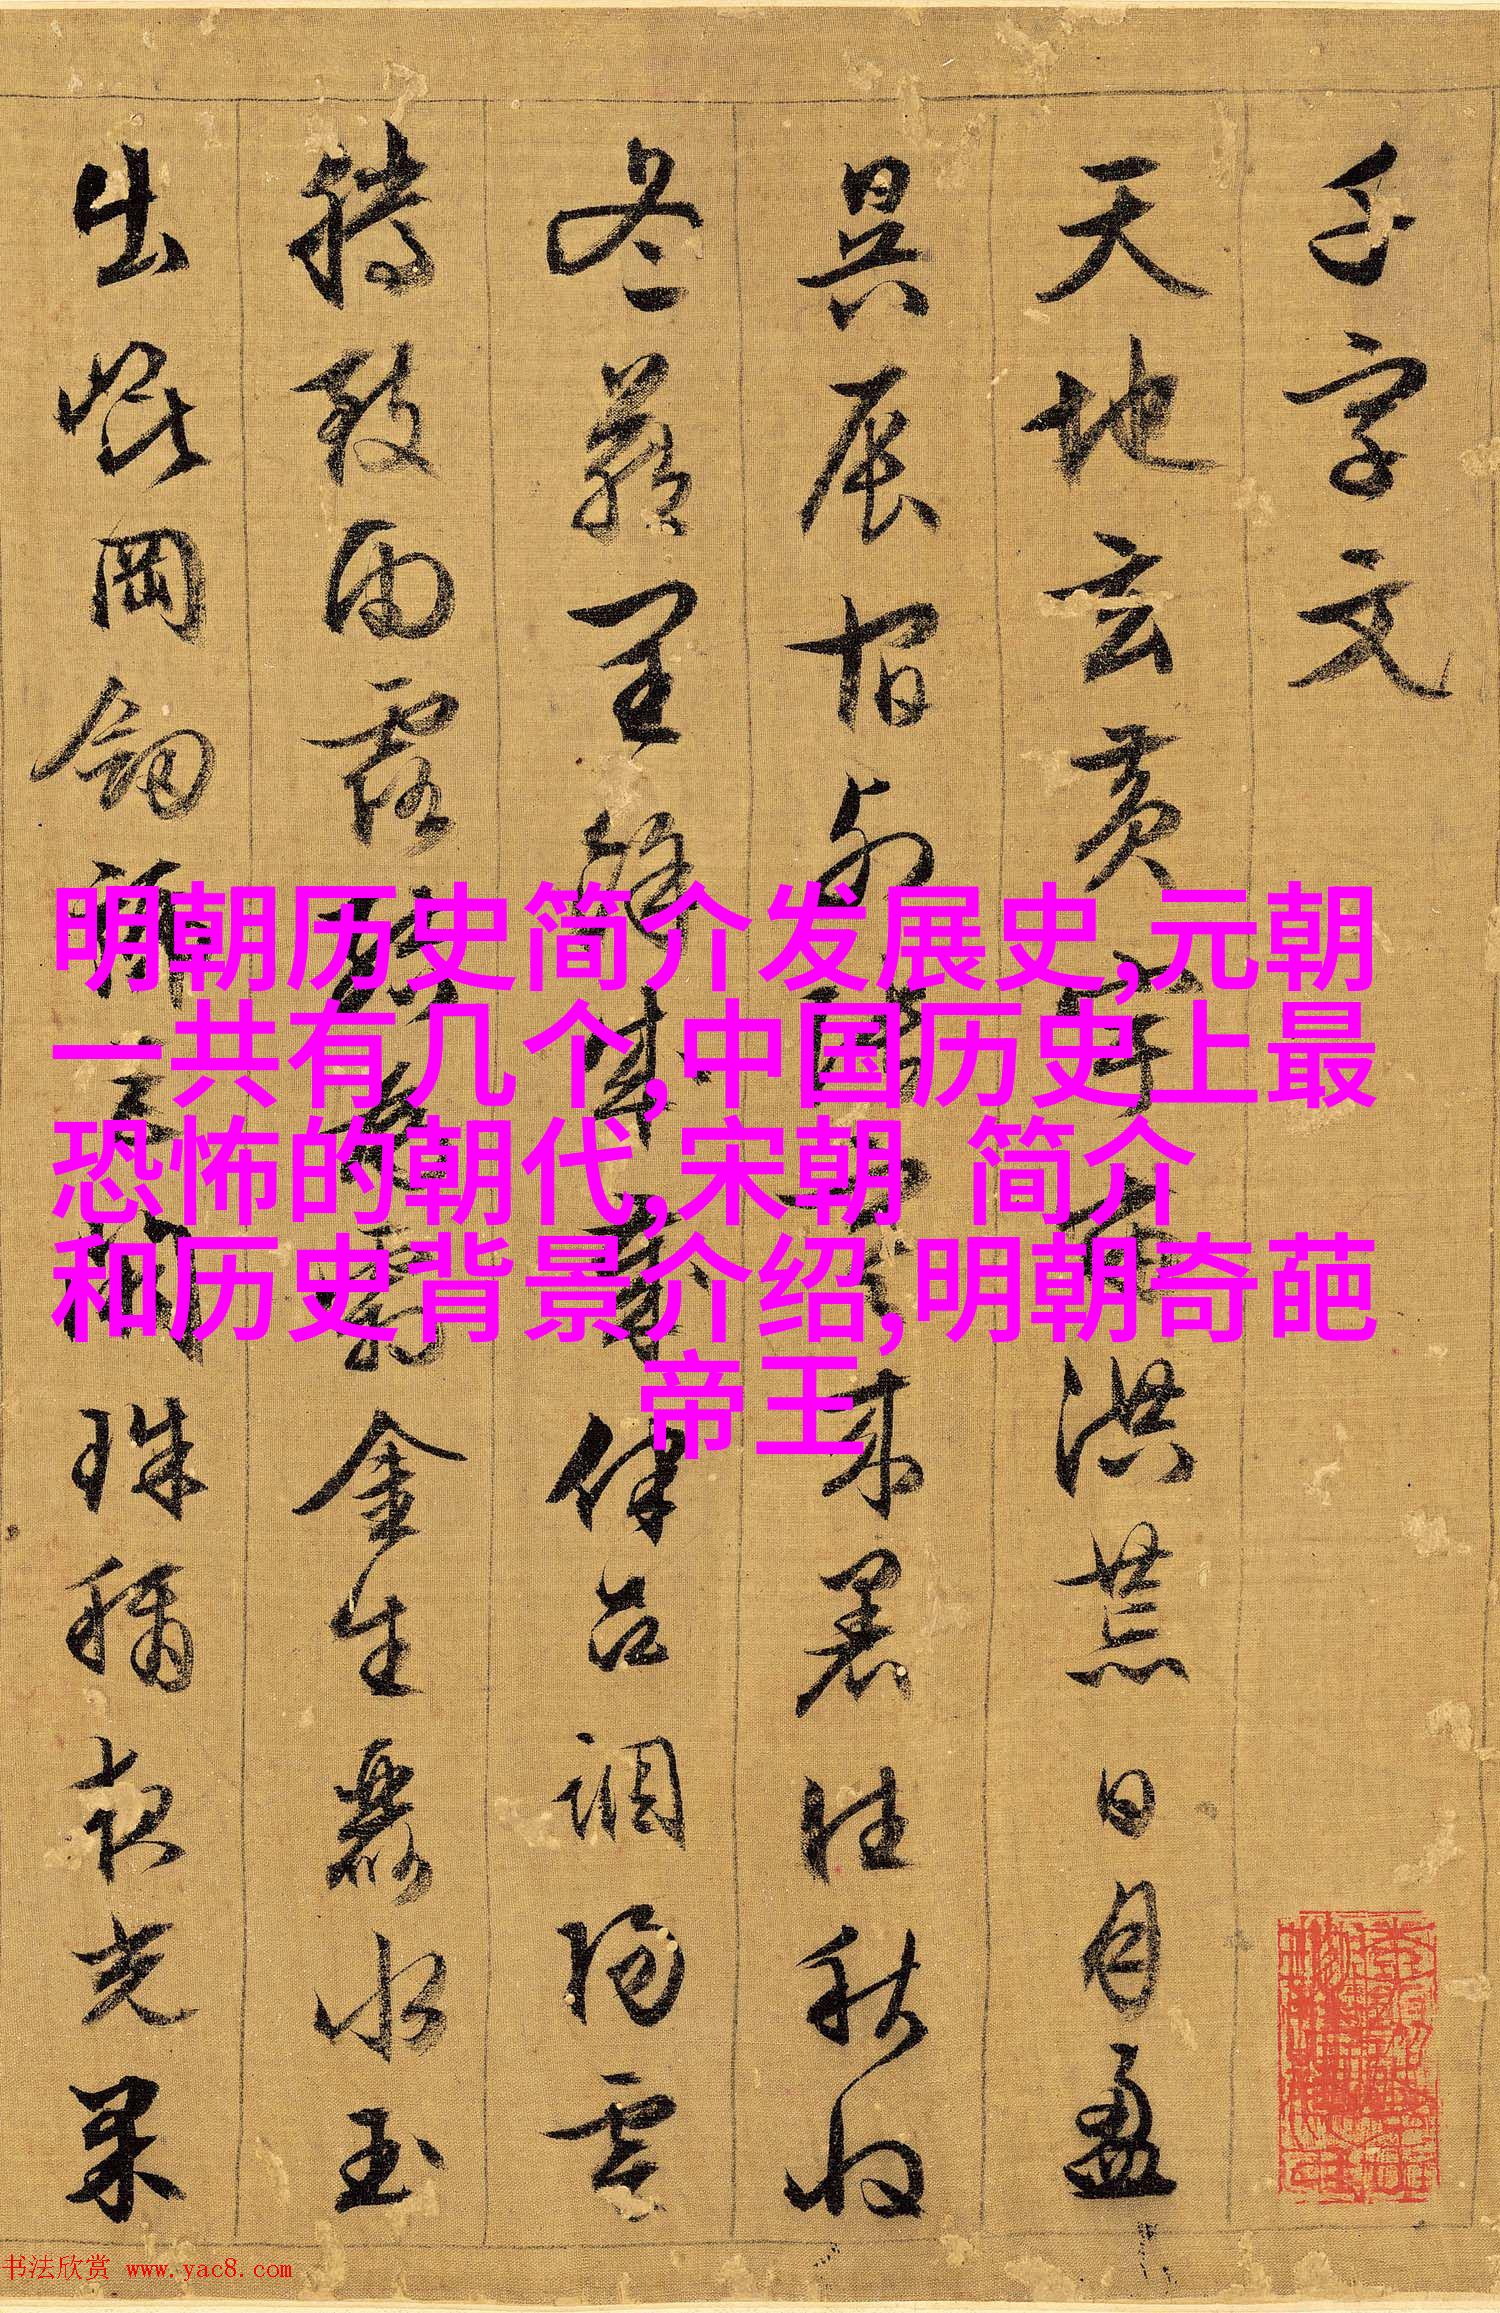 千字文
天地玄黄宇宙洪荒日月盈
昃辰宿列張寒来暑往秋收
冬藏閏餘成歲律吕調陽雲
騰致雨露結為霜金生麗水玉
出崑岡劒號巨闕珠稱夜光果
明朝历史简介发展史,元朝
一共有几个,中国历史上最
恐怖的朝代,宋朝 简介
和历史背景介绍,明朝奇葩
帝王
书法欣赏 www.yac8.com